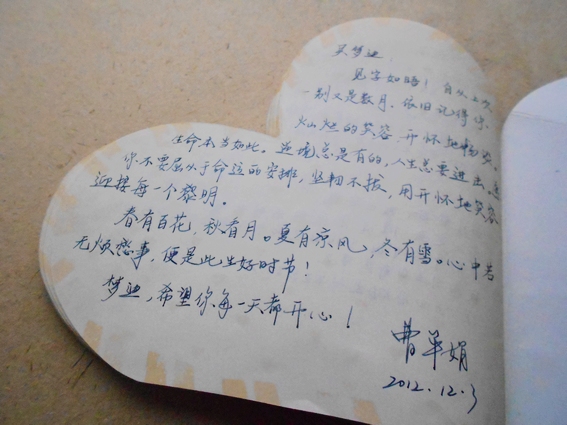 梦迪
见字如晤！自从上次
一别又是数月，依旧记得你
灿烂的笑容，开怀地畅
生命本当如此，逆境总是有的，人生总要进去，
你不要屈从于命运的安排，坚韧不拔，用开怀地笑容
迎接每一个黎明。
春有百花，秋有月。夏有凉风，冬有雪。心中若
无烦愁事，便是此生好时节！
梦迪，希望你每一天都开心！
曹军娟
2012.12.3